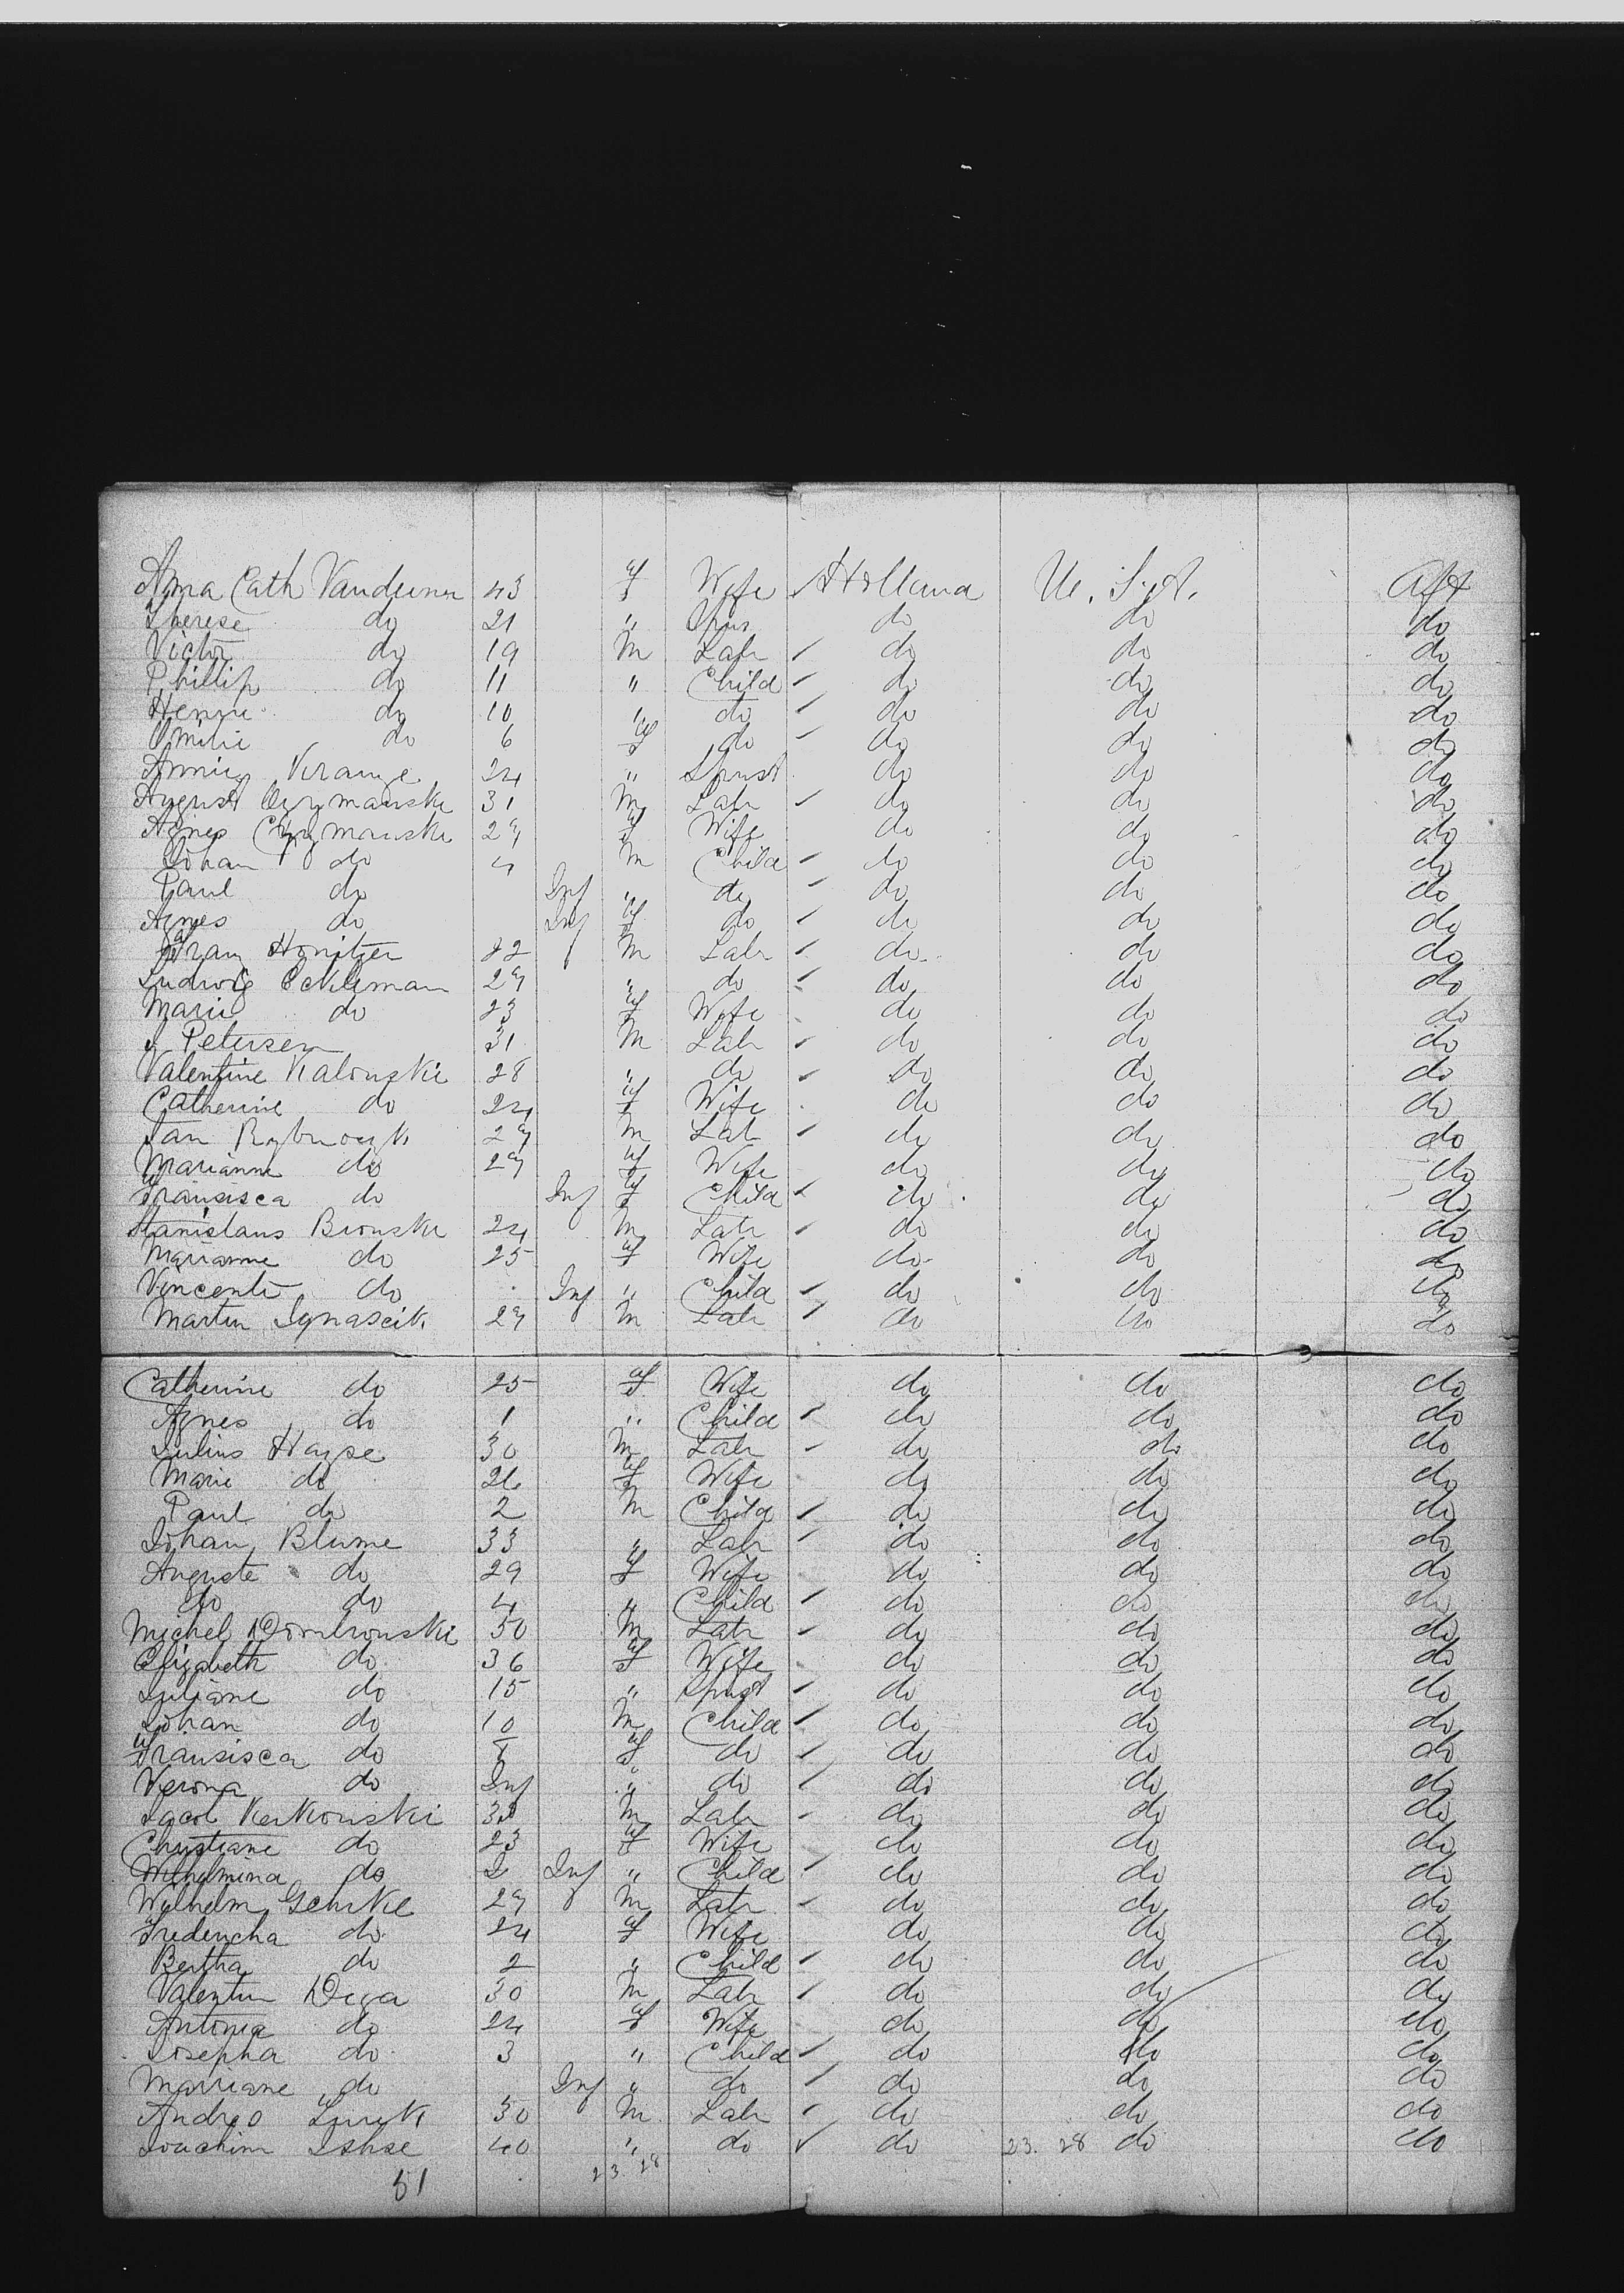 Anna Cath Vandeinn 43 f Wife Holland U.S.A. Aft
Therese do 21 " Spins do do do
Victor do 19 M Labr ✓ do do do
Phillip do 11 " Child ✓ do do do
Henri do 10 " do ✓ do do do
Emilie do 6 f do ✓ do do do
Annie 24 " Spinst do do do
August 31 M Labr ✓ do do do
Agnes 27 f Wife do do do
Johan do 4 M Child ✓ do do do
Paul do Inf " do ✓ do do do
Agnes do Inf f do ✓ do do do
Franz Honitzer 22 M Labr ✓ do do do
Ludwig 27 " do ✓ do do do
Marie do 23 f Wife do do do
J Petersen 31 M Labr ✓ do do do
Valentine Kalouski 28 " do ✓ do do do
Catherine do 24 f Wife do do do
Jan 27 M Lab ✓ do do do
Marianna do 27 f Wife do do do
Fransisca do Inf f Child ✓ do do do
Stanislaus Bronski 24 M Labr ✓ do do do
Marianne do 25 f Wife do do do
Vincenti do Inf " Child ✓ do do do
Martin Ignascik 27 M Labr ✓ do do do
Catherine do 25 f Wife do do do
Agnes do 1 " Child ✓ do do do
Julius Hayse 30 M Labr ✓ do do do
Marie do 26 f Wife do do do
Paul do 2 M Child ✓ do do do
Johan Blume 33 " Labr ✓ do do do
Auguste do 29 f Wife do do do
do do 4 " Child ✓ do do do
Michel Dombrouski 50 M Labr ✓ do do do
Elizabeth do 36 f Wife do do do
Juliane do 15 " Spinst ✓ do do do
Johan do 10 M Child ✓ do do do
Fransisca do 8 f do ✓ do do do
Verona do Inf " do ✓ do do do
Jacob Kerkouski M Labr ✓ do do do
Christiane do 23 f Wife do do do
Wilhelmina do Inf " Child ✓ do do do
Wilhelm Gehrke 27 M Labr ✓ do do do
Fredericha do 24 f Wife do do do
Bertha do 2 " Child ✓ do do do
Valentin Dega 30 M Labr ✓ do do do
Antonia do 24 f Wife do do do
Josepha do 3 " Child ✓ do do do
Marriane do Inf " do ✓ do do do
Andreo 30 M Labr ✓ do do do
Joachim 40 " do ✓ do 23. 28 do do
51 23 28